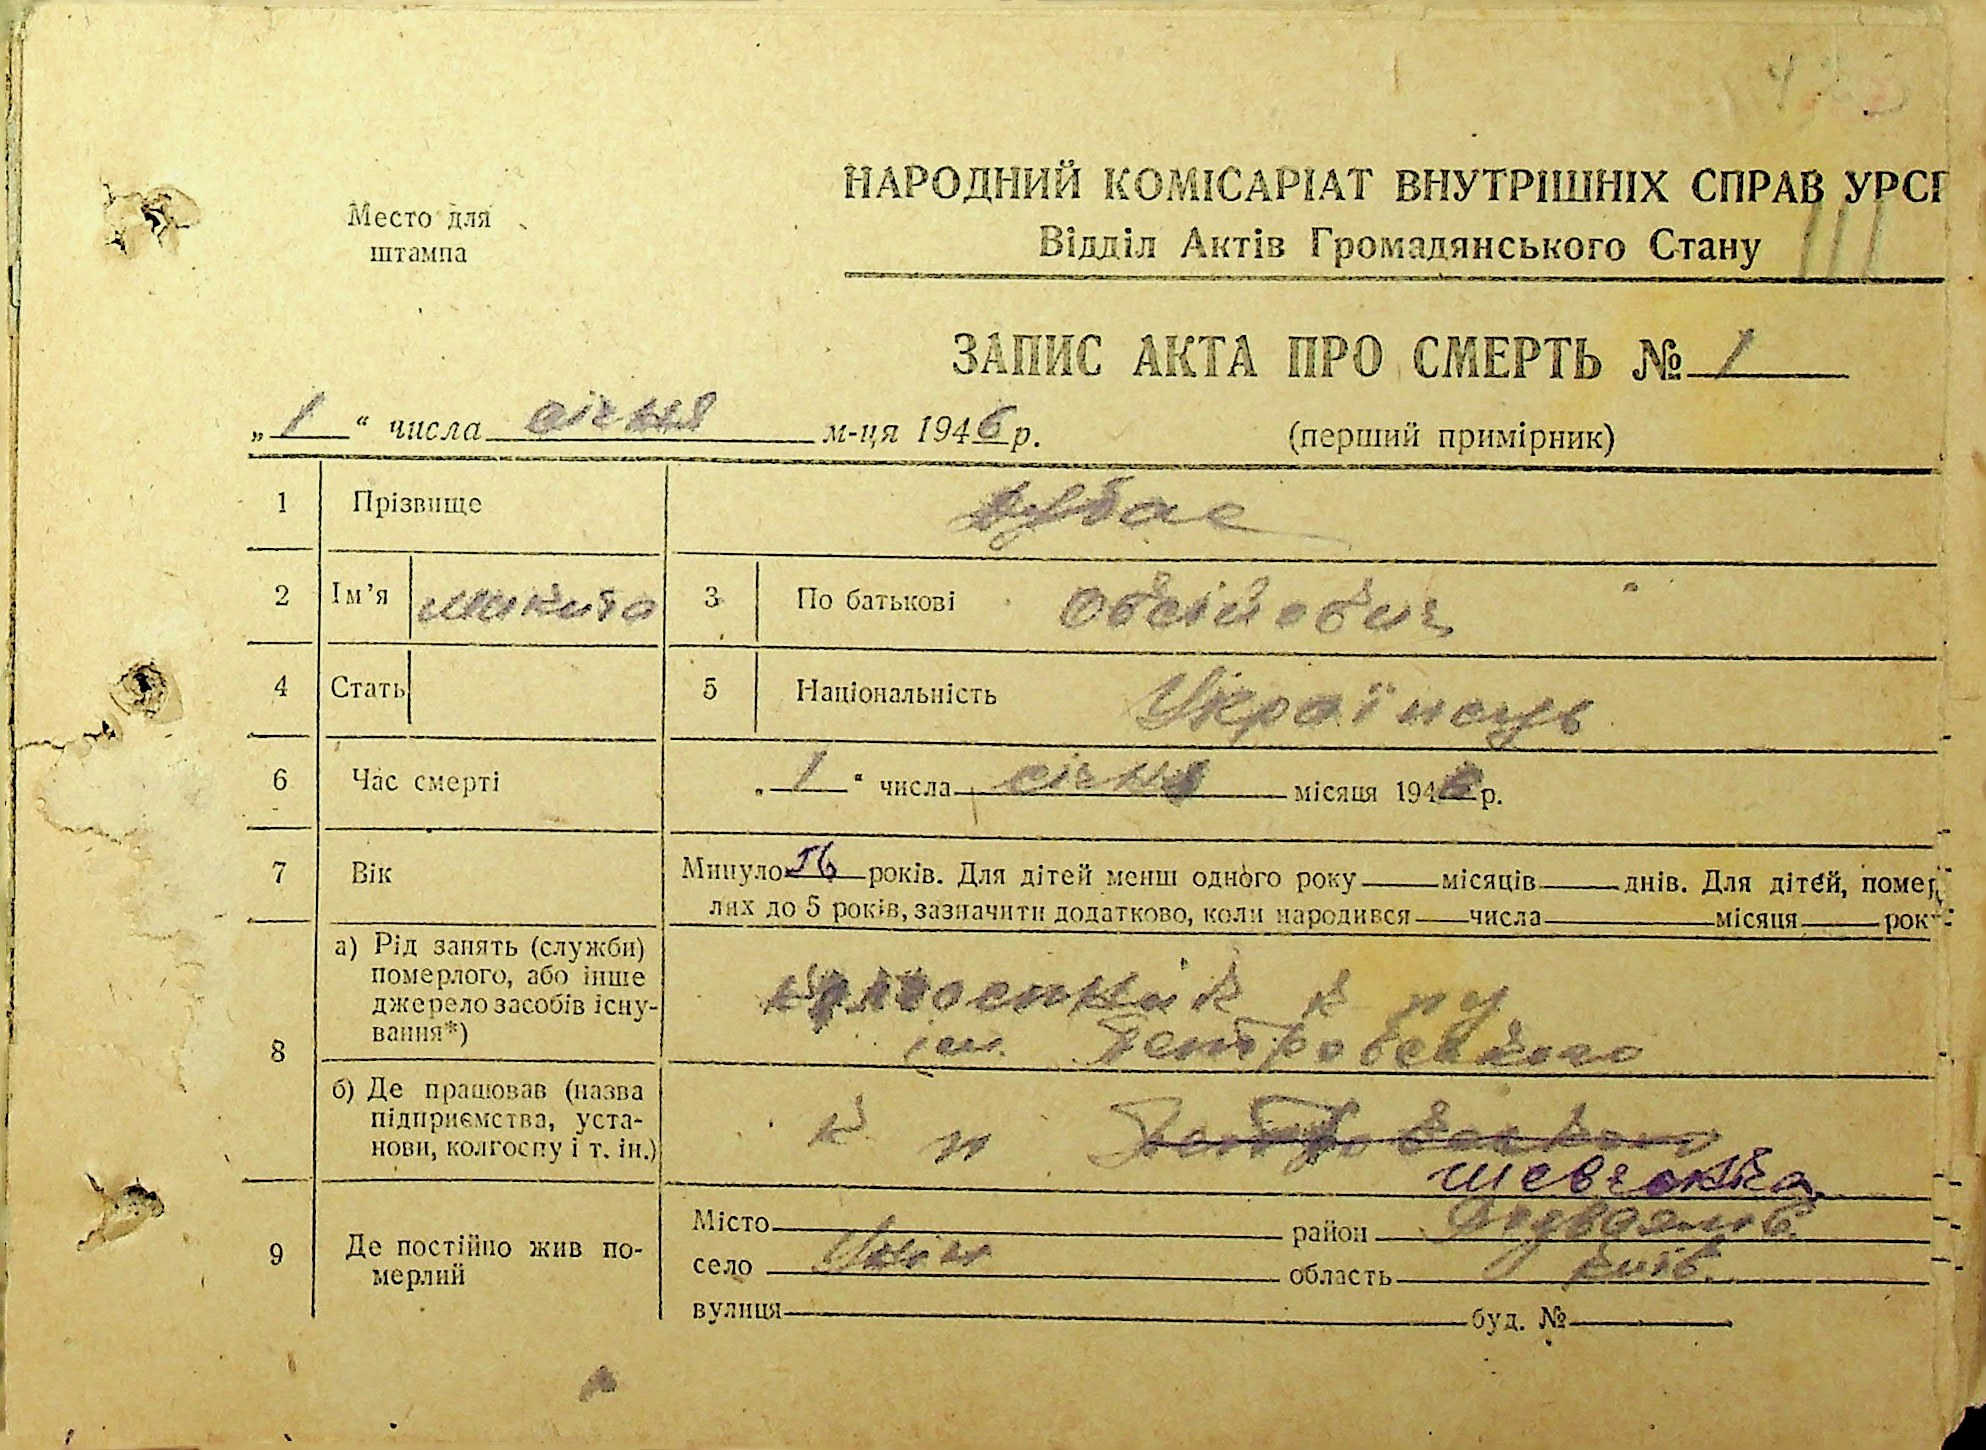 Место для
штампа
НАРОДНИЙ КОМІСАРІАТ ВНУТРІШНІХ СПРАВ УРСР
Відділ Актів Громадянського Стану
ЗАПИС АКТА ПРО СМЕРТЬ № 1
„ 1 “ числа січня м-ця 1946 р. (перший примірник)
1 Прізвище
2 Ім’я Микита 3 По батькові Овсійович
4 Стать 5 Національність Українець
6 Час смерті „ 1 “ числа січня місяця 1946 р.
7 Вік Минуло 56 років. Для дітей менш одного року місяців днів. Для дітей, помер
лих до 5 років, зазначити додатково, коли народився числа місяця рок
8 а) Рід занять (служби)
померлого, або інше
джерело засобів існу-
вання*)
колхосник к
ім. Петровського
б) Де працював (назва
підприємства, уста-
нови, колгоспу і т. ін.)
к Петровського
Шевченка
9 Де постійно жив по-
мерлий
Місто район
село область Київ.
вулиця буд. №